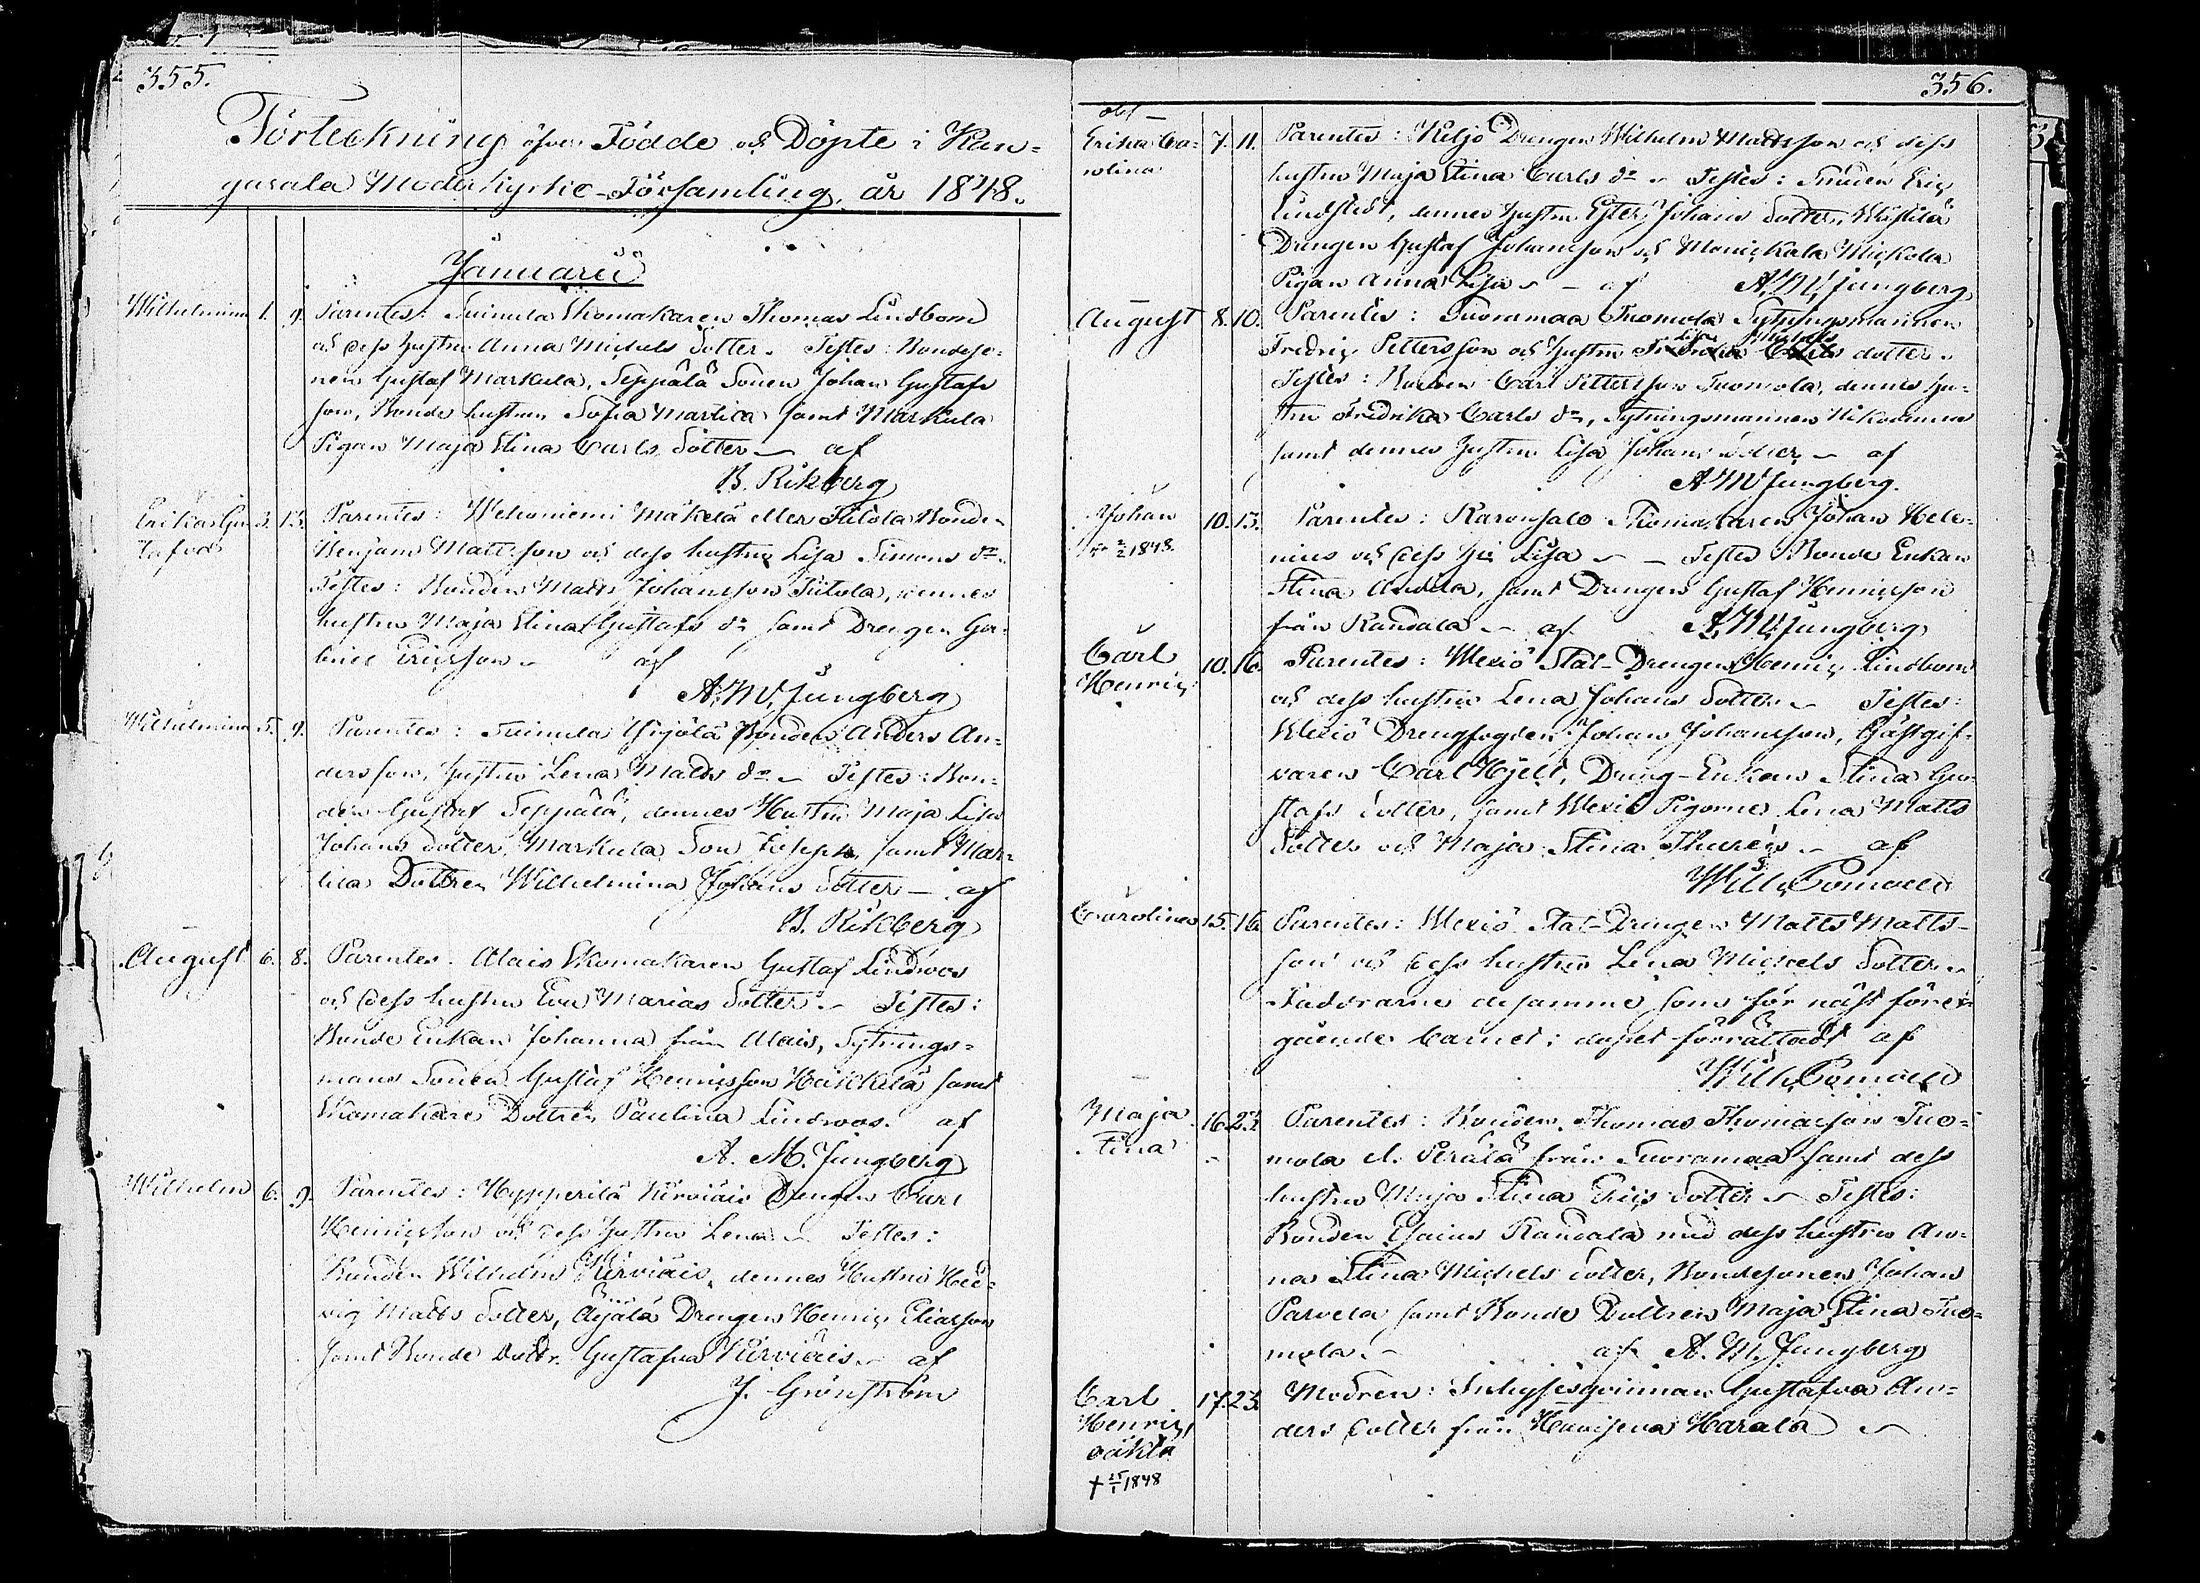 355.
Förteckning öfver Födde och Döpte i Kan-
gasala Moderkyrko-Församling, år 1848.
Januarii
Wilhelmina 1. 9. Parentes: Suinula Skomakaren Thomas Lindbom
och dess hustru Anna Michels dotter. Testes: Bondeso-
nen Gustaf Markula, Seppälä Sonen Johan Gustafs
son, Bonde hustrun Sofia Martila samt Markula
Pigan Maja Stina Carls dotter – af
B. Rikberg
Erika Gu- 3. 13. Parentes: Wehoniemi Mäkelä eller Bonden
stafva Benjam Mattsson och dess hustru Lisa Simons dr.
Testes: Bonden Matts Johansson, dennes
hustru Maja Stina Gustafs dr samt Drengen Ga-
briel Ericsson – af
A. W. Jungberg
Wilhelmina 5. 9. Parentes: Suinula Yrjölä Bonden Anders An-
dersson, hustru Lena Matts dr – Testes: Bon-
den Gustaf Seppälä, dennes Hustru Maja Lisa
Johans dotter, Markula Son samt Mar-
tila Dottren Wilhelmina Johans dotter – af
B. Rikberg
August 6. 8. Parentes: Alais Skomakaren Gustaf Lindroos
och dess hustru Eva Marias dotter – Testes:
Bonde Enkan Johanna från Alais, Sytnings-
mans Sonen Gustaf Henricsson Heikkilä samt
Skomakare Dottren Paulina Lindroos. af
A. M. Jungberg
Wilhelm 6. 9. Parentes: Hypperilä Kirviäis Drengen Carl
Henricsson och dess hustru Lena – Testes:
Bonden Wilhelm Kirviäis, dennes Hustru Hed-
vig Matts dotter, Äijälä Drengen Henric Eliasson
samt Bonde Dottr. Gustafva Kirviäis – af
J. Grönström
356.
Erika Ca- 7. 11. Parentes: Keljo Drengen Wilhelm Mattsson och dess
rolina hustru Maja Stina Carls dr – Testes: Smeden Eric
Lindstedt, dennes hustru Ester Johans dotter,
Drengen Gustaf Johansson och Monickala Mickola
Pigan Anna Lisa – af A. W. Jungberg
August 8. 10. Parentes: Suoramaa Tuomola Sytningsmannen
Fredric Pettersson och hustru Lisa Michels dotter.
Testes: Bonden Carl Pettersson Tuomola, dennes hu-
stru Fredrika Carls dr, Sytningsmannen
samt dennes hustru Lisa Johans dotter – af
A. W. Jungberg.
Johan 10. 13. Parentes: Raronsalo Skomakaren Johan Hele-
† 1848. nius och dess hu Lisa – Testes: Bonde Enkan
Stina, samt Drengen Gustaf Henricsson
från Randala – af A. W. Jungberg
Carl 10. 16. Parentes: Wexiö Stat-Drengen Henric Lindbom
Henric och dess hustru Lena Johans dotter – Testes:
Wexiö Drengfogden Johan Johansson, Gästgif-
varen Carl Hjelt, Dreng-Enkan Stina Gu-
stafs dotter, samt Wexiö Pigorne Lena Matts
dotter och Maja Stina Thuren – af
Wilh.
Carolina 15. 16. Parentes: Wexiö Stat-Drengen Matts Matts-
son och dess hustru Lena Michels dotter –
Faddrarne desamme som för näst före-
gående barnet; dopet förrättadt af
Wilh.
Maja 16. 23. Parentes: Bonden Thomas Thomasson Tuo-
Stina mola el. Perälä från Suoramaa samt dess
hustru Maja Stina Erics dotter – Testes:
Bonden Esaias Randala med dess hustru An-
na Stina Michels dotter, Bondesonen Johan
Parvela samt Bonde Dottren Maja Stina Tuo-
mola. – af A. M. Jungberg
Carl 17. 23. Modren: Inhysesqvinnan Gustafva An-
Henric, ders dotter från Harala –
oäkta
† 25/1 1848